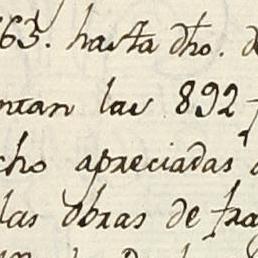 63. hasta dho. d
ntan las 892
cho apreciadas
las obras de fra